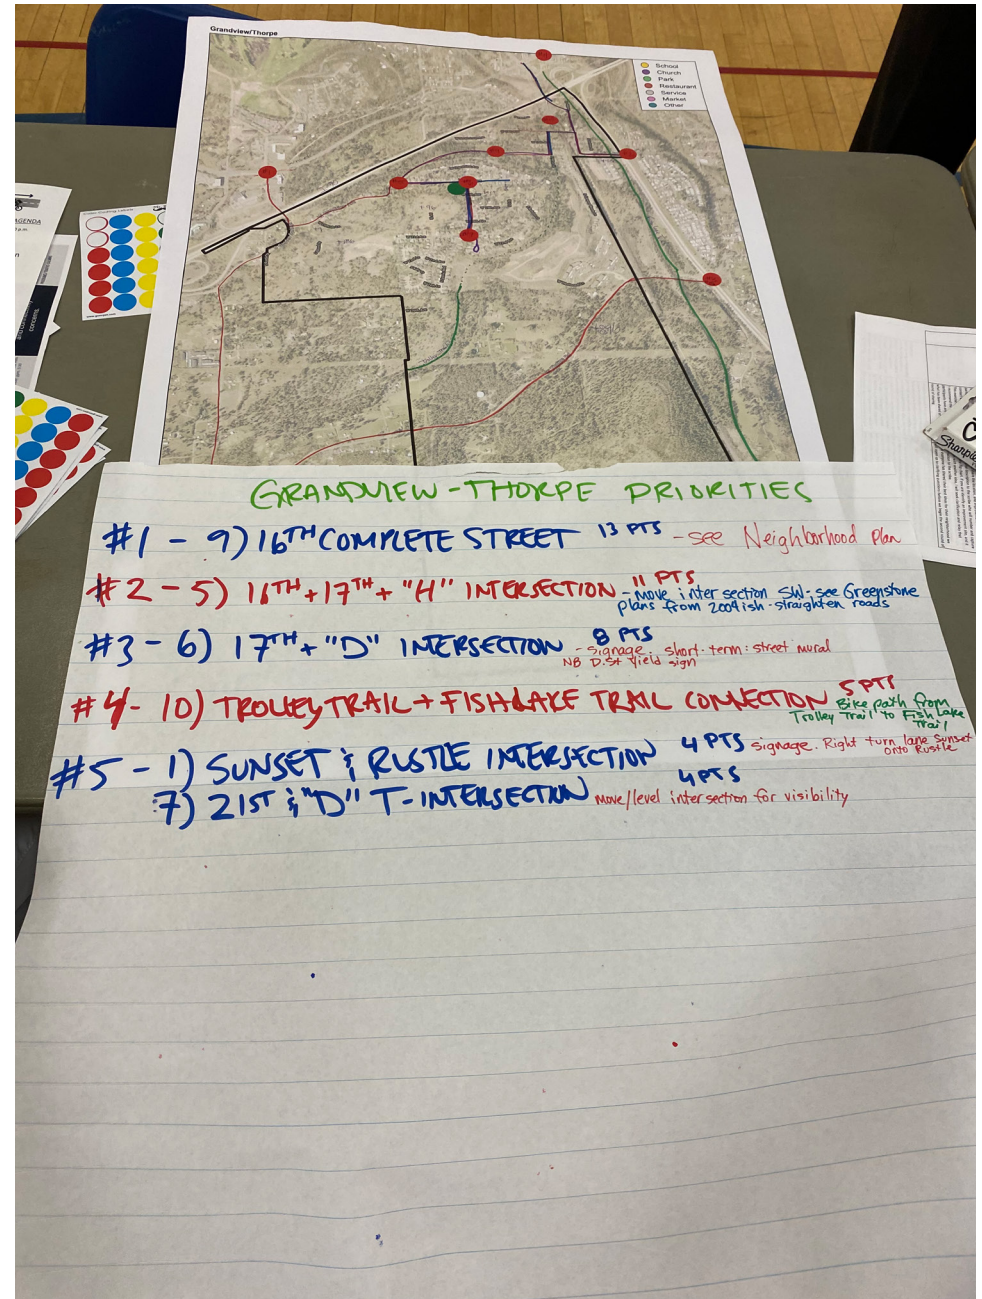 Grandview/Thorpe
School
Church
Park
Restaurant
Service
Market
Other
AGENDA
GRANDVIEW-THORPE PRIORITIES
#1 - 9) 16TH COMPLETE STREET 13 PTS - see Neighborhood Plan
#2 - 5) 16TH + 17TH + "H" INTERSECTION 11 PTS
- Move intersection SW - see Greenstone
plans from 2004ish - straighten roads
#3 - 6) 17TH + "D" INTERSECTION 8 PTS
- Signage. short-term: street mural
NB D. St Yield sign
#4 - 10) TROLLEY TRAIL + FISH LAKE TRAIL CONNECTION 5 PTS
Bike path from
Trolley Trail to Fish Lake
Trail
#5 - 1) SUNSET & RUSTLE INTERSECTION 4 PTS signage. Right turn lane Sunset
onto Rustle
7) 21ST & "D" T-INTERSECTION 4 PTS
move/level intersection for visibility
Sharpie